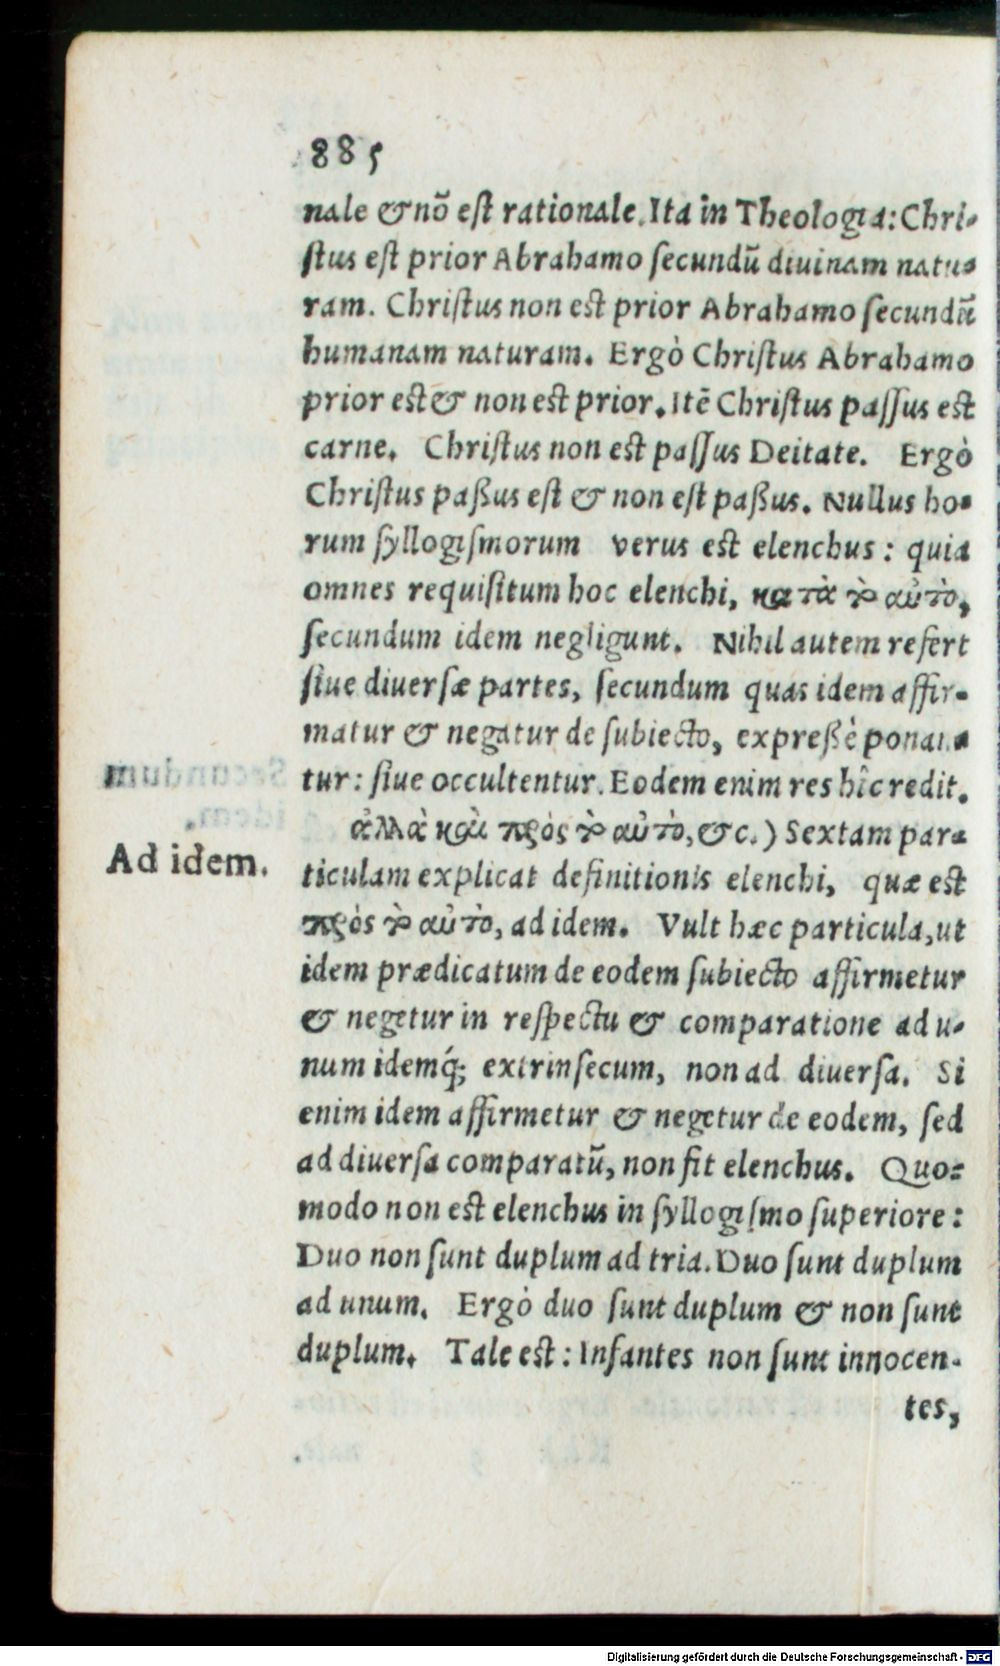 885
nale & nõ est rationale. Ita in Theologia: Chri-
stus est prior Abrahamo secundũ diuinam natu-
ram. Christus non est prior Abrahamo secundũ
humanam naturam. Ergò Christus Abrahamo
prior est & non est prior. Itẽ Christus passus est
carne. Christus non est passus Deitate. Ergò
Christus paßus est & non est paßus. Nullus ho-
rum syllogismorum verus est elenchus: quia
omnes requisitum hoc elenchi, κατὰ τὸ αὐτὸ,
secundum idem negligunt. Nihil autem refert
siue diuersæ partes, secundum quas idem affir-
matur & negatur de subiecto, expreßè ponan-
tur: siue occultentur. Eodem enim res hîc redit.
ἀλλὰ καὶ πρὸς τὸ αὐτὸ, &c.) Sextam par-
Ad idem.
ticulam explicat definitionis elenchi, quæ est
πρὸς τὸ αὐτὸ, ad idem. Vult hæc particula, ut
idem prædicatum de eodem subiecto affirmetur
& negetur in respectu & comparatione ad u-
num idemq́; extrinsecum, non ad diuersa. Si
enim idem affirmetur & negetur de eodem, sed
ad diuersa comparatũ, non fit elenchus. Quo-
modo non est elenchus in syllogismo superiore:
Duo non sunt duplum ad tria. Duo sunt duplum
ad unum. Ergò duo sunt duplum & non sunt
duplum. Tale est: Infantes non sunt innocen-
tes,
Digitalisierung gefördert durch die Deutsche Forschungsgemeinschaft - DFG